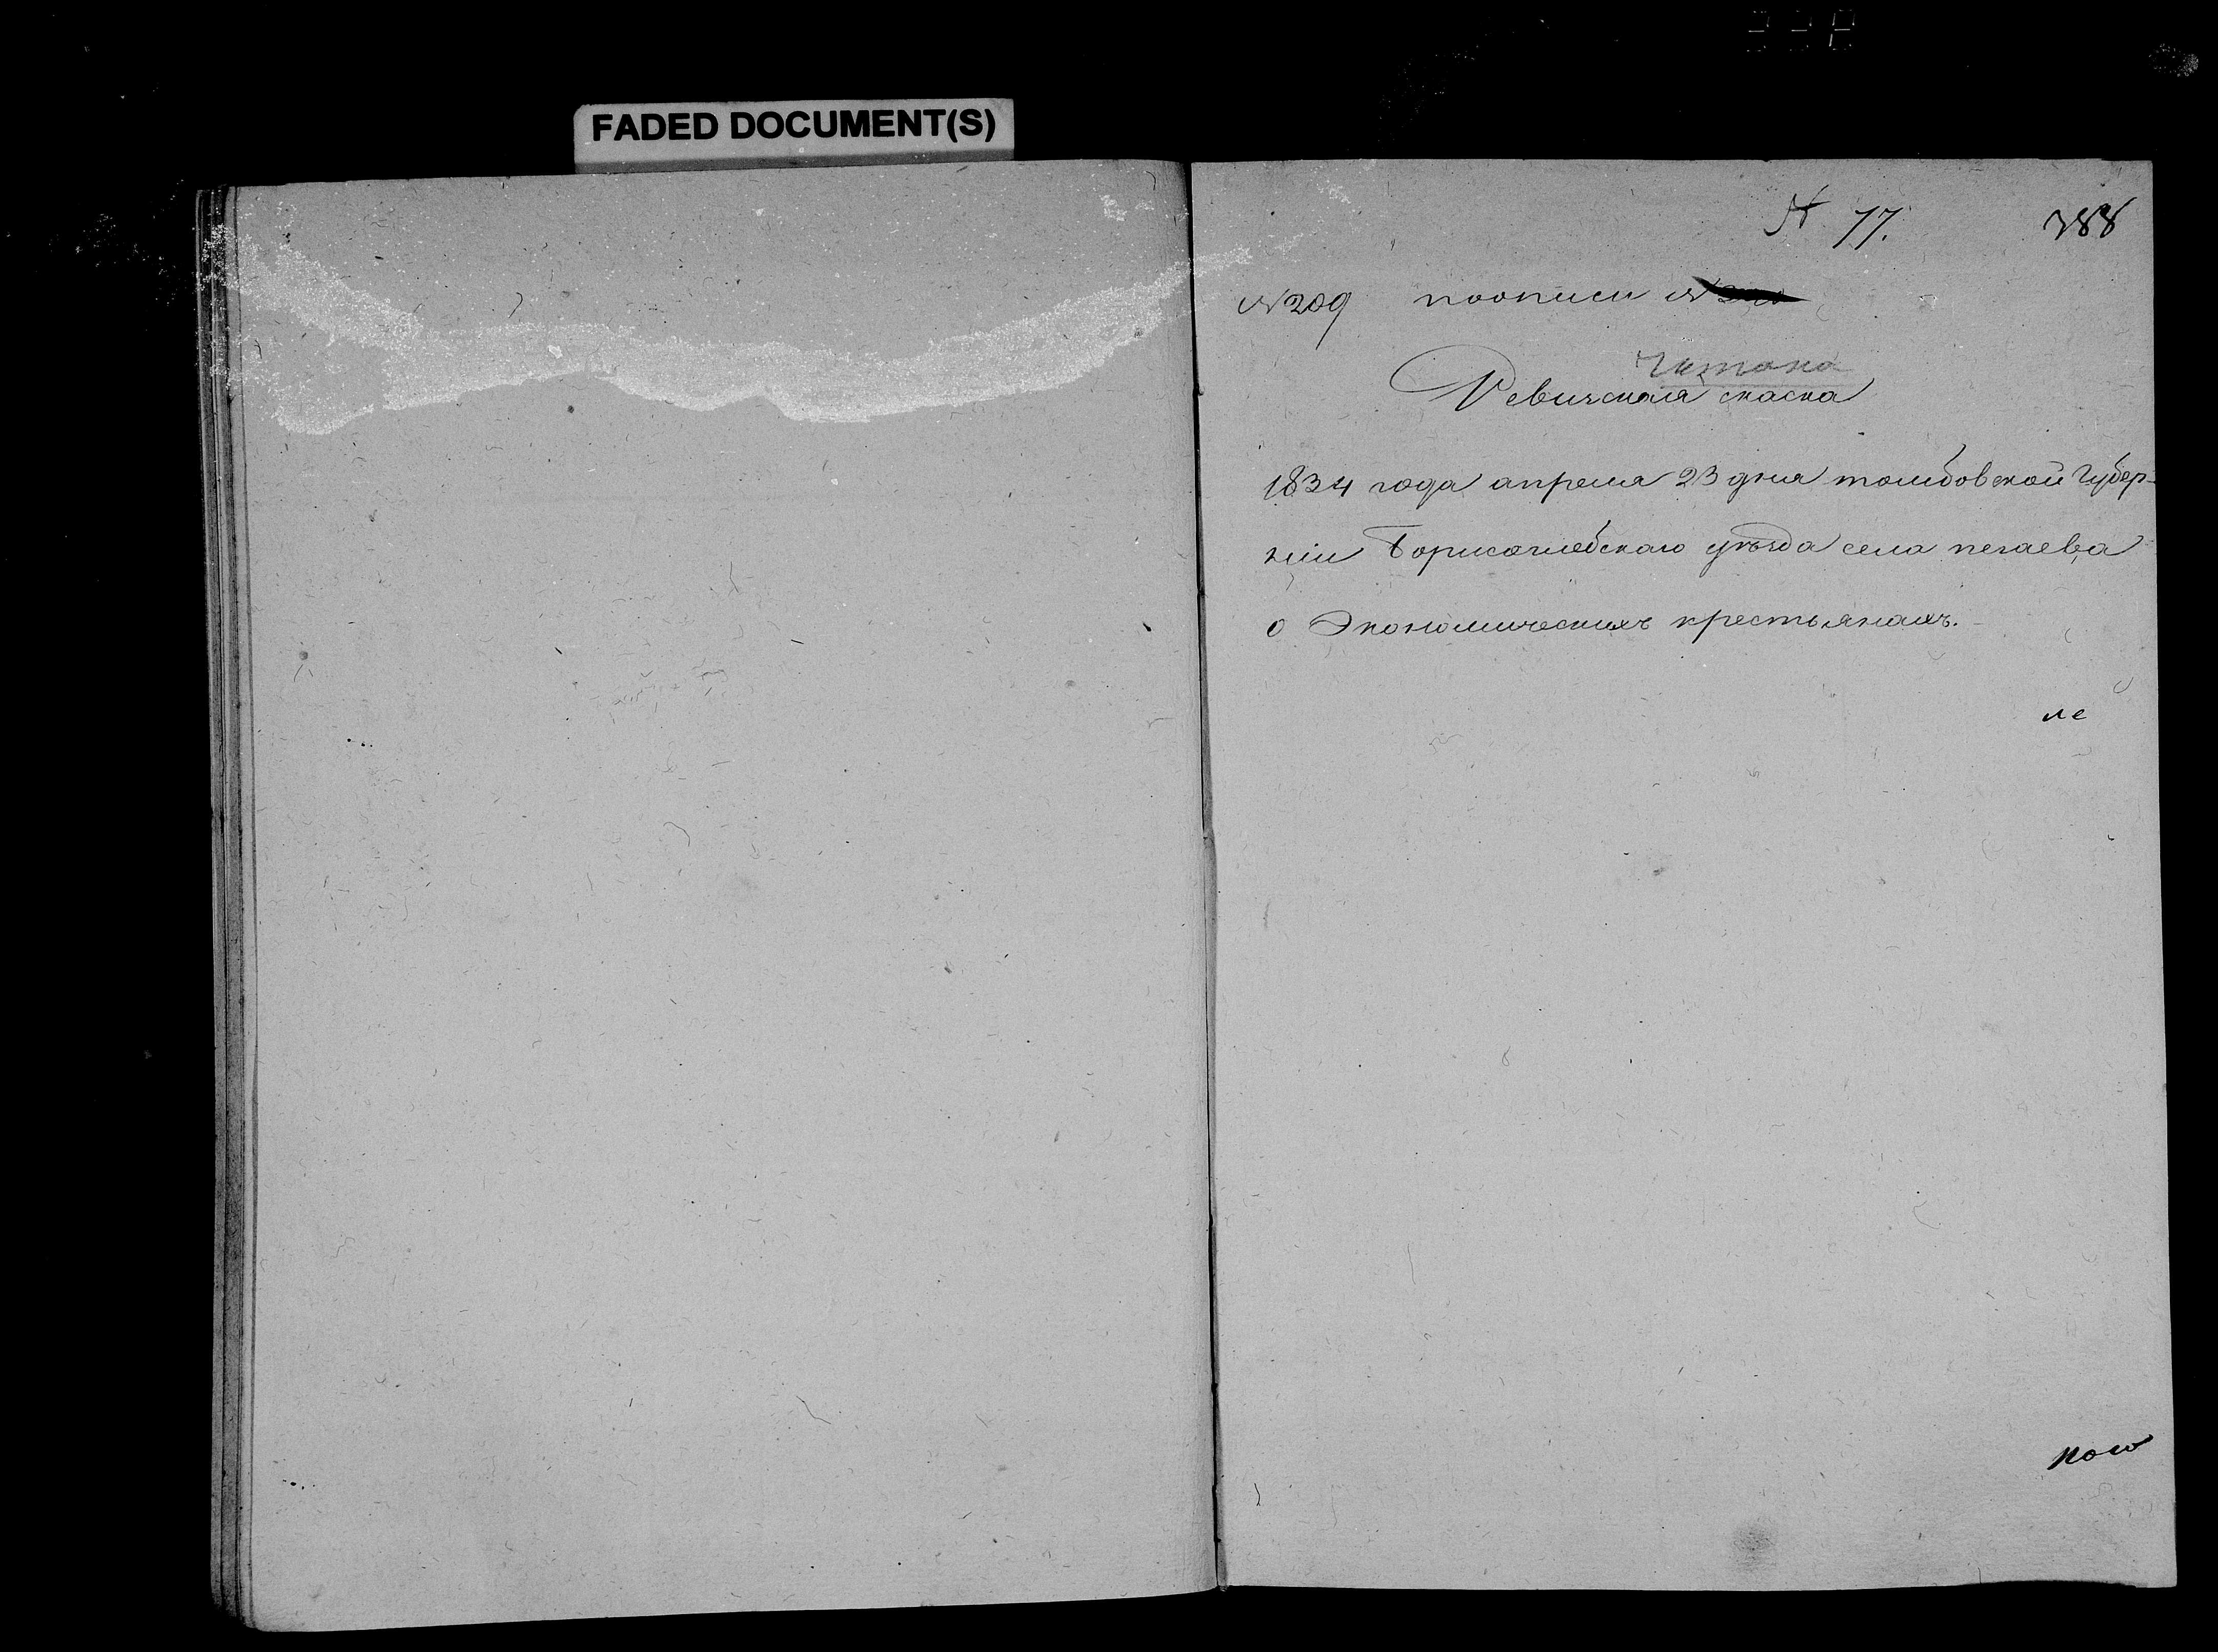 FADED DOCUMENT(S)
№ 77.
388
№ 209 поописи №
Читана
Ревизская скаска
1834 года апреля 23 дня томбовской Губер-
нiи Борисоглебскаго уѣзда села пезаева
о Экономическихъ крестьянахъ.
ле
ною